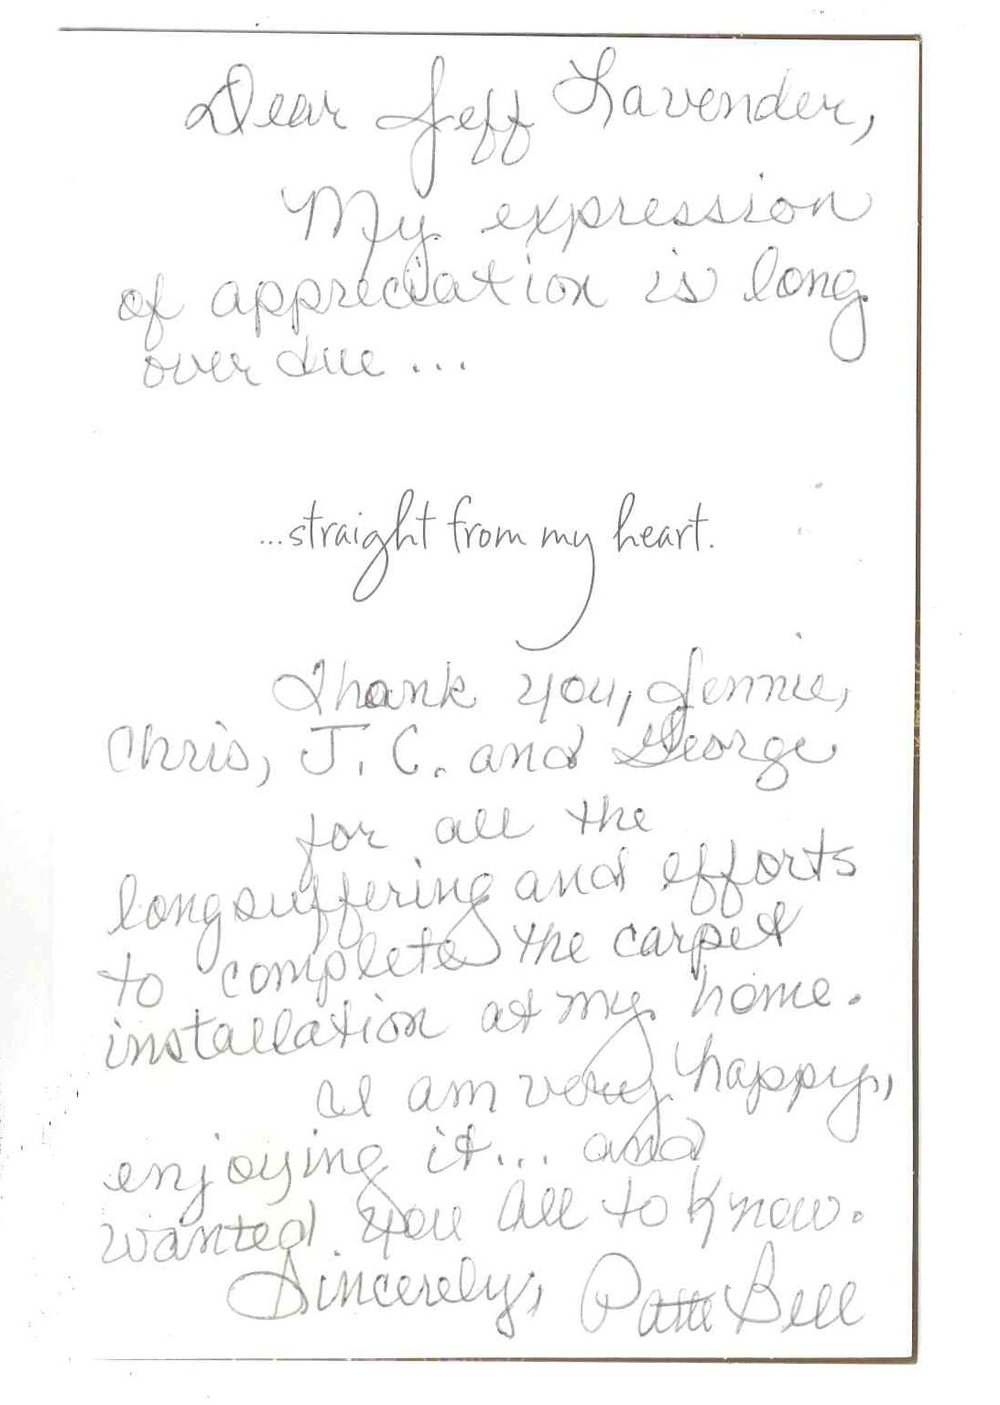 Dear Jeff Lavender,
My expression
of appreciation is long
over due ...
...straight from my heart.
Thank you, Jennie,
Chris, J. C. and George
for all the
longsuffering and efforts
to complete the carpet
installation at my home.
I am very happy,
enjoying it... and
wanted you all to know.
Sincerely, Patti Bell